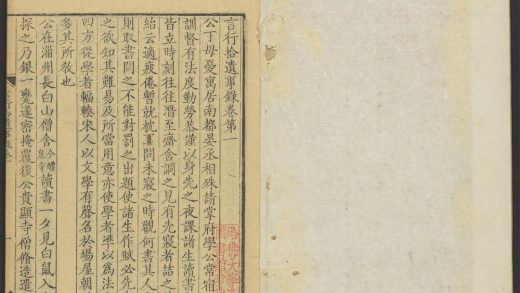 言行拾遺事錄卷第一
公丁母憂寓居南都晏丞相殊請掌府學公常宿
訓督有法度勤勞恭謹以身先之夜課諸生讀書
皆立時刻往往潛至齋舍詗之見有先寢者詰之
紿云適疲倦暫就枕問未寢之時觀何書其人
則取書問之不能對罰之出題使諸生作賦必先
之欲知其難易及所當用意亦使學者準以爲法
四方從學者輻輳宋人以文學有聲名於場屋朝
多其所敎也
公在淄州長白山僧舍今醴泉寺讀書一夕見白鼠入
探之乃銀一甕遂密掩覆後公貴顯寺僧脩造遣